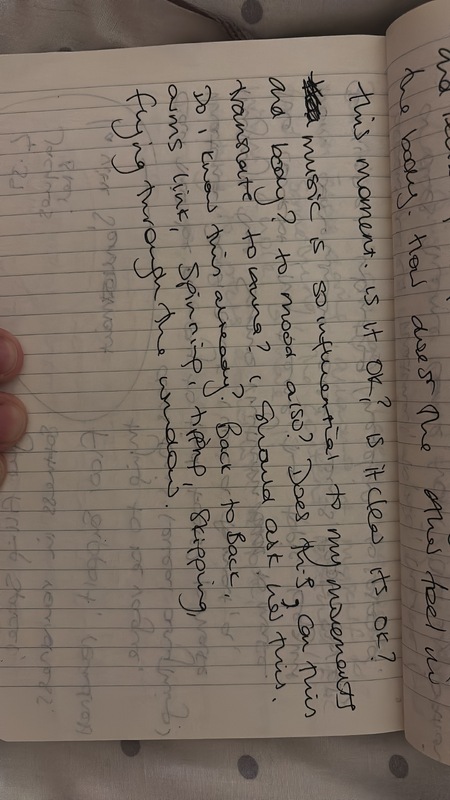 the body. How does the other feel in
this moment. is it OK? is it clear its OK?
music is so influential to my movements
and body? to mood also? Does this? can this
translate to? I should ask her this.
Do I know this already? Back to Back,
arms link, spinning, tipping, skipping,
flying through the window.